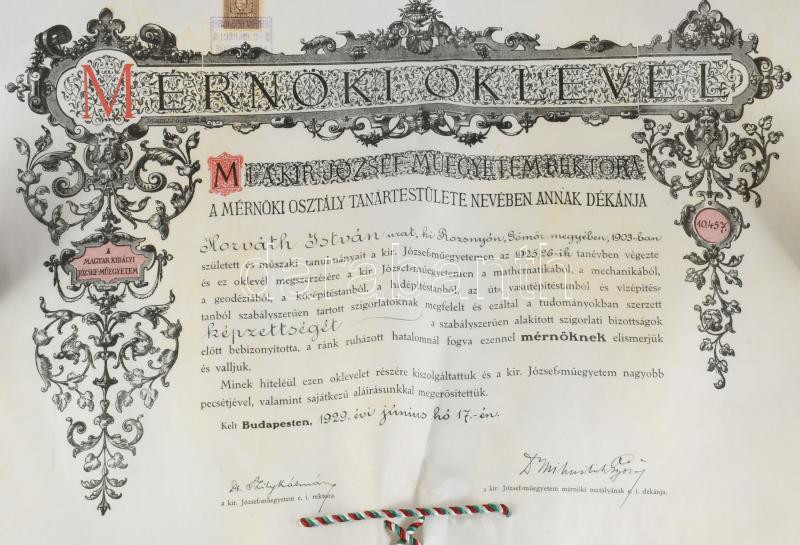 MÉRNÖKI OKLEVÉL
MI A KIR. JÓZSEF-MŰEGYETEM REKTORA
A MÉRNÖKI OSZTÁLY TANÁRTESTÜLETE NEVÉBEN ANNAK DÉKÁNJA
10.457.
A
MAGYAR KIRÁLYI
JÓZSEF-MŰEGYETEM
Horváth István urat, ki Rozsnyón, Gömör megyében, 1903-ban
született s műszaki tanulmányait a kir. József-műegyetemen az 1925/26-ik tanévben végezte
és ez oklevél megszerzésére a kir. József-műegyetemen a mathematikából, a mechanikából,
a geodéziából, a középítéstanból, a hídépítéstanból, az út-, vasútépítéstanból és vízépítés-
tanból szabályszerűen tartott szigorlatoknak megfelelt és ezáltal a tudományokban szerzett
képzettségét a szabályszerűen alakított szigorlati bizottságok
előtt bebizonyította, a ránk ruházott hatalomnál fogva ezennel mérnöknek elismerjük
és valljuk.
Minek hiteléül ezen oklevelet részére kiszolgáltattuk és a kir. József-műegyetem nagyobb
pecsétjével, valamint sajátkezű aláírásunkkal megerősítettük.
Kelt Budapesten, 1929. évi június hó 17.-én.
Dr. Szily Kálmán
a kir. József-műegyetem e. i. rektora.
Dr Mihailich Győző
a kir. József-műegyetem mérnöki osztályának e. i. dékánja.
darabanth